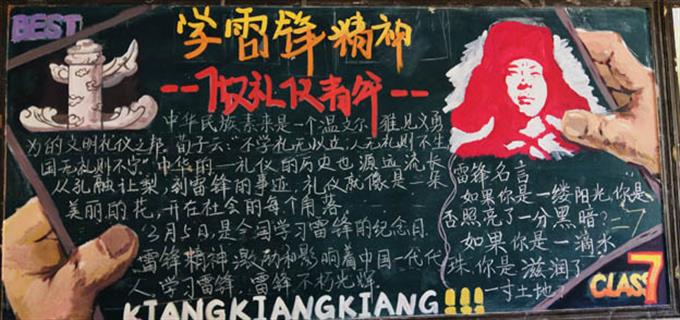 BEST
学雷锋精神
--做礼仪青年--
中华民族素来是一个温文尔雅,见义勇
为的文明礼仪之邦,荀子云:“不学礼无以立,人无礼则不生
国无礼则不宁”中华的一礼仪的历史也源远流长
从孔融让梨,到雷锋的事迹,礼仪就像是一朵
美丽的花,开在社会的每个角落
3月5日,是全国学习雷锋的纪念日
雷锋精神,激励和影响着中国一代代
人,学习雷锋,雷锋不朽光辉
雷锋名言
“如果你是一缕阳光,你是
否照亮了一分黑暗?
如果你是一滴水
珠,你是滋润了
一寸土地?
CLASS 7
KIANGKIANGKIANG!!!